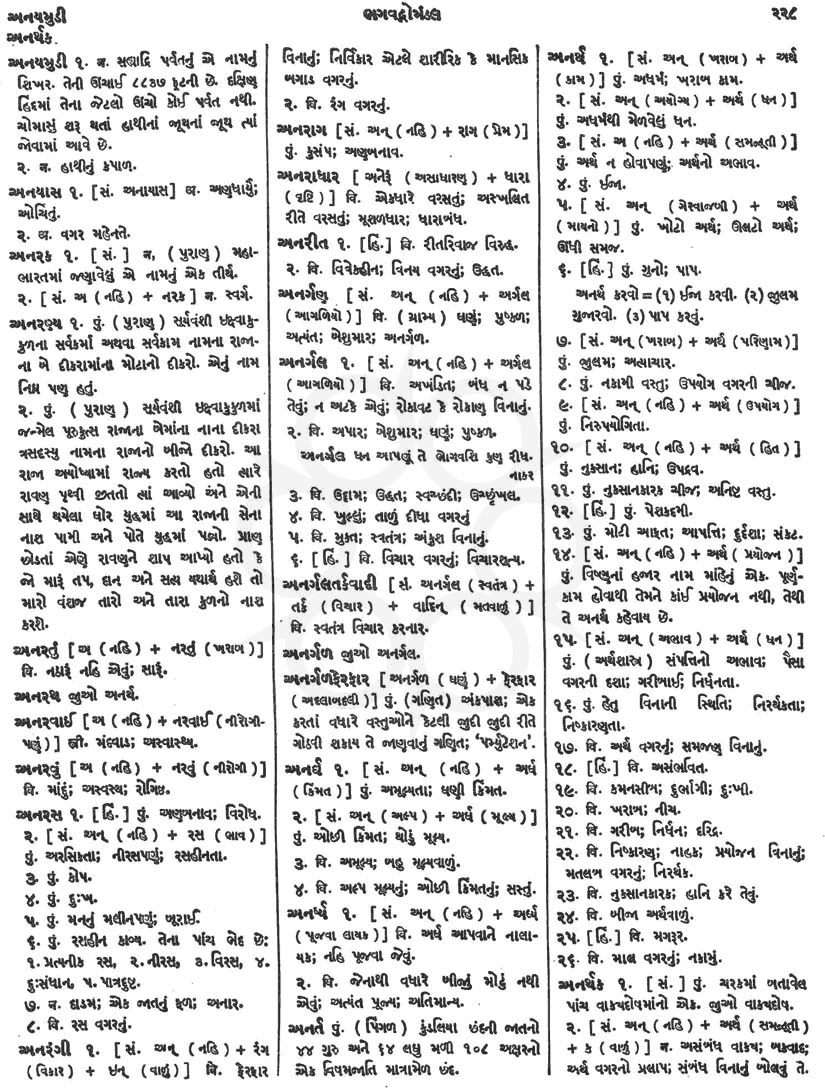 અનયમુડી
અનર્થક
ભગવદ્ગોમંડલ
૨૨૮
અનયમુડી ૧. ન. સહ્યાદ્રિ પર્વતનું એ નામનું
શિખર. તેની ઊંચાઈ ૮૮૩૭ ફૂટની છે. દક્ષિણ
હિંદમાં તેના જેટલો ઊંચો કોઈ પર્વત નથી.
ચોમાસું શરૂ થતાં હાથીનાં જૂથનાં જૂથ ત્યાં
જોવામાં આવે છે.
૨. ન. હાથીનું કપાળ.
અનયાસ ૧. [ સં. અનાયાસ ] અ. અણધાર્યું;
ઓચિંતું.
૨. અ. વગર મહેનતે.
અનરક ૧. [ સં. ] ન. ( પુરાણ ) મહા-
ભારતમાં જણાવેલું એ નામનું એક તીર્થ.
૨. [ સં. અ ( નહિ ) + નરક ] ન. સ્વર્ગ.
અનરણ્ય ૧. પું. ( પુરાણ ) સૂર્યવંશી ઇક્ષ્વાકુ-
કુળના સર્વકર્મા અથવા સર્વકામ નામના રાજા-
ના બે દીકરામાંના મોટાનો દીકરો. એનું નામ
નિઘ્ન પણ હતું.
૨. પું. ( પુરાણ ) સૂર્યવંશી ઇક્ષ્વાકુકુળમાં
જન્મેલ પૂરુકુત્સ રાજાના બેમાંના નાના દીકરા
ત્રસદસ્યુ નામના રાજાનો બીજો દીકરો. આ
રાજા અયોધ્યામાં રાજ્ય કરતો હતો ત્યારે
રાવણ પૃથ્વી જીતતો ત્યાં આવ્યો અને એની
સાથે થયેલા ઘોર યુદ્ધમાં આ રાજાની સેના
નાશ પામી અને પોતે યુદ્ધમાં પડ્યો. પ્રાણ
છોડતાં એણે રાવણને શાપ આપ્યો હતો કે
જો મારૂં તપ, દાન અને સત્ય યથાર્થ હશે તો
મારો વંશજ તારો અને તારા કુળનો નાશ
કરશે.
અનરતું [ અ ( નહિ ) + નરતું ( ખરાબ ) ]
વિ. નઠારૂં નહિ એવું; સારૂં.
અનરથ જુઓ અનર્થ.
અનરવાઈ [ અ ( નહિ ) + નરવાઈ ( નીરોગી-
પણું ) ] સ્ત્રી. મંદવાડ; અસ્વાસ્થ્ય.
અનરવું [ અ ( નહિ ) + નરવું ( નીરોગી ) ]
વિ. માંદું; અસ્વસ્થ; રોગિષ્ઠ.
અનરસ ૧. [ હિં. ] પું. અણબનાવ; વિરોધ.
૨. [ સં. અન્ ( નહિ ) + રસ ( ભાવ ) ]
પું. અરસિકતા; નીરસપણું; રસહીનતા.
૩. પું. કોપ.
૪. પું. દુઃખ.
૫. પું. મનનું મલીનપણું; બૂરાઈ.
૬. પું. રસહીન કાવ્ય. તેના પાંચ ભેદ છે:
૧. પ્રત્યનીક રસ, ૨. નીરસ, ૩. વિરસ, ૪.
દુઃસંધાન, ૫. પાત્રદુષ્ટ.
૭. ન. દાડમ; એક જાતનું ફળ; અનાર.
૮. વિ. રસ વગરનું.
અનરંગી ૧. [ સં. અન્ ( નહિ ) + રંગ
( વિકાર ) + ઇન્ ( વાળું ) ] વિ. ફેરફાર
વિનાનું; નિર્વિકાર એટલે શારીરિક કે માનસિક
બગાડ વગરનું.
૨. વિ. રંગ વગરનું.
અનરાગ [ સં. અન્ ( નહિ ) + રાગ ( પ્રેમ ) ]
પું. કુસંપ; અણબનાવ.
અનરાધાર [ અનેરૂં ( અસાધારણ ) + ધારા
( વૃષ્ટિ ) ] વિ. એકધારે વરસતું; અસ્ખલિત
રીતે વરસતું; મૂશળધાર; ધારાબંધ.
અનરીત ૧. [ હિં. ] વિ. રીતરિવાજ વિરુદ્ધ.
૨. વિ. વિવેકહીન; વિનય વગરનું; ઉદ્ધત.
અનર્ગણ [ સં. અન્ ( નહિ ) + અર્ગલ
( આગળિયો ) ] વિ. ( ગ્રામ્ય ) ઘણું; પુષ્કળ;
અત્યંત; બેશુમાર; અનર્ગળ.
અનર્ગલ ૧. [ સં. અન્ ( નહિ ) + અર્ગલ
( આગળિયો ) ] વિ. અખંડિત; બંધ ન પડે
તેવું; ન અટકે એવું; રોકાવટ કે રોકાણ વિનાનું.
૨. વિ. અપાર; બેશુમાર; ઘણું; પુષ્કળ.
અનર્ગલ ધન આપણું તે ભોગવશિ કુણ રીધ.
નાકર
૩. વિ. ઉદ્દામ; ઉદ્ધત; સ્વચ્છંદી; ઉચ્છૃંખલ.
૪. વિ. ખુલ્લું; તાળું દીધા વગરનું
૫. વિ. મુક્ત; સ્વતંત્ર; અંકુશ વિનાનું.
૬. [ હિં. ] વિ. વિચાર વગરનું; વિચારશૂન્ય.
અનર્ગલતર્કવાદી [ સં. અનર્ગલ ( સ્વતંત્ર ) +
તર્ક ( વિચાર ) + વાદિન્ ( મતવાળું ) ]
વિ. સ્વતંત્ર વિચાર કરનાર.
અનર્ગળ જુઓ અનર્ગલ.
અનર્ગળફેરફાર [ અનર્ગળ ( ઘણું ) + ફેરફાર
( અદલાબદલી ) ] પું. ( ગણિત ) અંકપાશ; એક
કરતાં વધારે વસ્તુઓને કેટલી જુદી જુદી રીતે
ગોઠવી શકાય તે જાણવાનું ગણિત; 'પર્મ્યુટેશન'.
અનર્ઘ ૧. [ સં. અન્ ( નહિ ) + અર્ઘ
( કિંમત ) ] પું. અમૂલ્યતા; ઘણી કિંમત.
૨. [ સં. અન્ ( અલ્પ ) + અર્ઘ ( મૂલ્ય ) ]
પું. ઓછી કિંમત; થોડું મૂલ્ય.
૩. વિ. અમૂલ્ય; બહુ મૂલ્યવાળું.
૪. વિ. અલ્પ મૂલ્યનું; ઓછી કિંમતનું; સસ્તું.
અનર્ઘ્ય ૧. [ સં. અન્ ( નહિ ) + અર્ઘ્ય
( પૂજવા લાયક ) ] વિ. અર્ઘ આપવાને નાલા-
યક; નહિ પૂજવા જેવું.
૨. વિ. જેનાથી વધારે બીજું મોટું નથી
એવું; અત્યંત પૂજ્ય; અતિમાન્ય.
અનર્ત પું. ( પિંગળ ) કુંડલિયા છંદની જાતનો
૪૪ ગુરુ અને ૬૪ લઘુ મળી ૧૦૮ અક્ષરનો
એક વિષમજાતિ માત્રામેળ છંદ.
અનર્થ ૧. [ સં. અન્ ( ખરાબ ) + અર્થ
( કામ ) ] પું. અધર્મ; ખરાબ કામ.
૨. [ સં. અન્ ( અયોગ્ય ) + અર્થ ( ધન ) ]
પું. અધર્મથી મેળવેલું ધન.
૩. [ સં. અ ( નહિ ) + અર્થ ( સમજૂતી ) ]
પું. અર્થ ન હોવાપણું; અર્થનો અભાવ.
૪. પું. ઈજા.
૫. [ સં. અન્ ( ગેરવાજબી ) + અર્થ
( માયનો ) ] પું. ખોટો અર્થ; ઊલટો અર્થ;
ઊંધી સમજ.
૬. [ હિં. ] પું. ગુનો; પાપ.
અનર્થ કરવો = (૧) ઈજા કરવી. (૨) જુલમ
ગુજારવો. (૩) પાપ કરવું.
૭. [ સં. અન્ ( ખરાબ ) + અર્થ ( પરિણામ ) ]
પું. જુલમ; અત્યાચાર.
૮. પું. નકામી વસ્તુ; ઉપયોગ વગરની ચીજ.
૯. [ સં. અન્ ( નહિ ) + અર્થ ( ઉપયોગ ) ]
પું. નિરુપયોગિતા.
૧૦. [ સં. અન્ ( નહિ ) + અર્થ ( હિત ) ]
પું. નુકસાન; હાનિ; ઉપદ્રવ.
૧૧. પું. નુકસાનકારક ચીજ; અનિષ્ટ વસ્તુ.
૧૨. [ હિં. ] પું. પેશકદમી.
૧૩. પું. મોટી આફત; આપત્તિ; દુર્દશા; સંકટ.
૧૪. [ સં. અન્ ( નહિ ) + અર્થ ( પ્રયોજન ) ]
પું. વિષ્ણુનાં હજાર નામ માંહેનું એક. પૂર્ણ-
કામ હોવાથી તેમને કાંઈ પ્રયોજન નથી, તેથી
તે અનર્થ કહેવાય છે.
૧૫. [ સં. અન્ ( અભાવ ) + અર્થ ( ધન ) ]
પું. ( અર્થશાસ્ત્ર ) સંપત્તિનો અભાવ; પૈસા
વગરની દશા; ગરીબાઈ; નિર્ધનતા.
૧૬. પું. હેતુ વિનાની સ્થિતિ; નિરર્થકતા;
નિષ્કારણતા.
૧૭. વિ. અર્થ વગરનું; સમજણ વિનાનું.
૧૮. [ હિં. ] વિ. અસંભવિત.
૧૯. વિ. કમનસીબ; દુર્ભાગી; દુઃખી.
૨૦. વિ. ખરાબ; નીચ.
૨૧. વિ. ગરીબ; નિર્ધન; દરિદ્ર.
૨૨. વિ. નિષ્કારણ; નાહક; પ્રયોજન વિનાનું;
મતલબ વગરનું; નિરર્થક.
૨૩. વિ. નુકસાનકારક; હાનિ કરે તેવું.
૨૪. વિ. બીજા અર્થવાળું.
૨૫. [ હિં. ] વિ. મગરૂર.
૨૬. વિ. માલ વગરનું; નકામું.
અનર્થક ૧. [ સં. ] પું. ચરકમાં બતાવેલ
પાંચ વાક્યદોષમાંનો એક. જુઓ વાક્યદોષ.
૨. [ સં. અન્ ( નહિ ) + અર્થ ( સમજૂતી )
+ ક ( વાળું ) ] ન. અસંબંધ વાક્ય; બકવાદ;
અર્થ વગરનો પ્રલાપ; સંબંધ વિનાનું બોલવું તે.